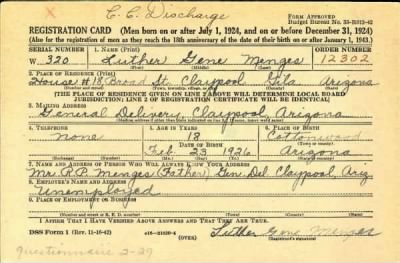 C. C. Discharge
FORM APPROVED
Budget Bureau No. 33-R012-42
REGISTRATION CARD—(Men born on or after July 1, 1924, and on or before December 31, 1924)
(Also for the registration of men as they reach the 18th anniversary of the date of their birth on or after January 1, 1943.)
SERIAL NUMBER 1. NAME (Print) ORDER NUMBER
W. 320 Luther Gene Menges 12302
2. PLACE OF RESIDENCE (Print)
House #18 Broad St. Claypool Gila Arizona
[THE PLACE OF RESIDENCE GIVEN ON LINE 2 ABOVE WILL DETERMINE LOCAL BOARD
JURISDICTION; LINE 2 OF REGISTRATION CERTIFICATE WILL BE IDENTICAL]
3. MAILING ADDRESS
General Delivery Claypool, Arizona
4. TELEPHONE 5. AGE IN YEARS 6. PLACE OF BIRTH
None 18 Cottonwood
DATE OF BIRTH
Feb 23 1926 Arizona
7. NAME AND ADDRESS OF PERSON WHO WILL ALWAYS KNOW YOUR ADDRESS
Mr. R.P. Menges (Father) Gen. Del Claypool, Ariz
8. EMPLOYER'S NAME AND ADDRESS
Unemployed
9. PLACE OF EMPLOYMENT OR BUSINESS
(Number and street or R. F. D. number) (Town) (County) (State)
I AFFIRM THAT I HAVE VERIFIED ABOVE ANSWERS AND THAT THEY ARE TRUE.
DSS Form 1 (Rev. 11-16-42) (over) Luther Gene Menges
(Registrant's signature)
Questionnaire 2-29